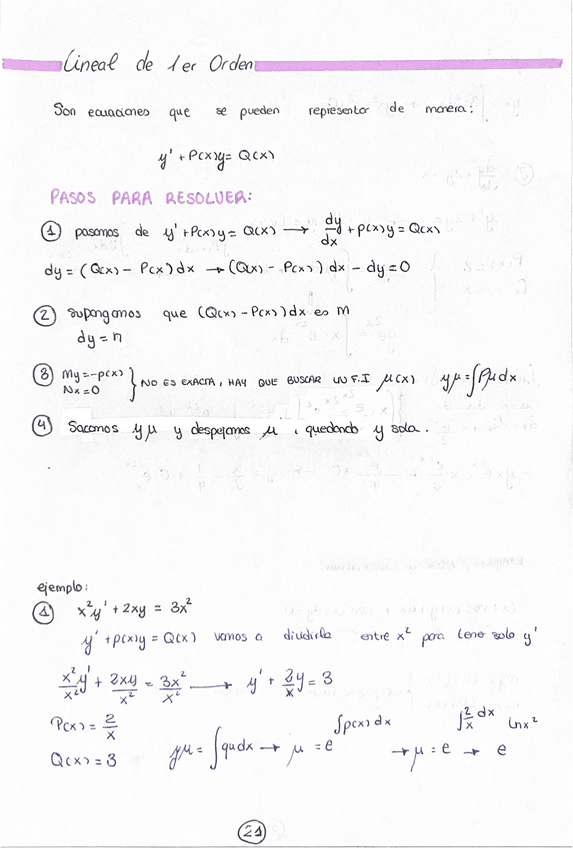 Lineal de 1er Orden
Son ecuaciones que se pueden representar de manera:
y' + P(x)y = Q(x)
PASOS PARA RESOLVER:
① pasamos de y' + P(x)y = Q(x) → dy/dx + p(x)y = Q(x)
dy = (Q(x) - P(x)) dx → (Q(x) - P(x)) dx - dy = 0
② supongamos que (Q(x) - P(x)) dx es M
dy = n
③ My = -p(x)
Nx = 0 } NO ES EXACTA, HAY QUE BUSCAR UN F.I μ(x) yμ = ∫Pμ dx
④ Sacamos yμ y despejamos μ, quedando y sola.
ejemplo:
① x²y' + 2xy = 3x²
y' + p(x)y = Q(x) vamos a dividirla entre x² para tener solo y'
x²/x² y' + 2xy/x² = 3x²/x² → y' + 2/x y = 3
P(x) = 2/x
Q(x) = 3
yμ = ∫qu dx → μ = e^∫p(x) dx → μ = e^∫2/x dx → e^lnx²
21